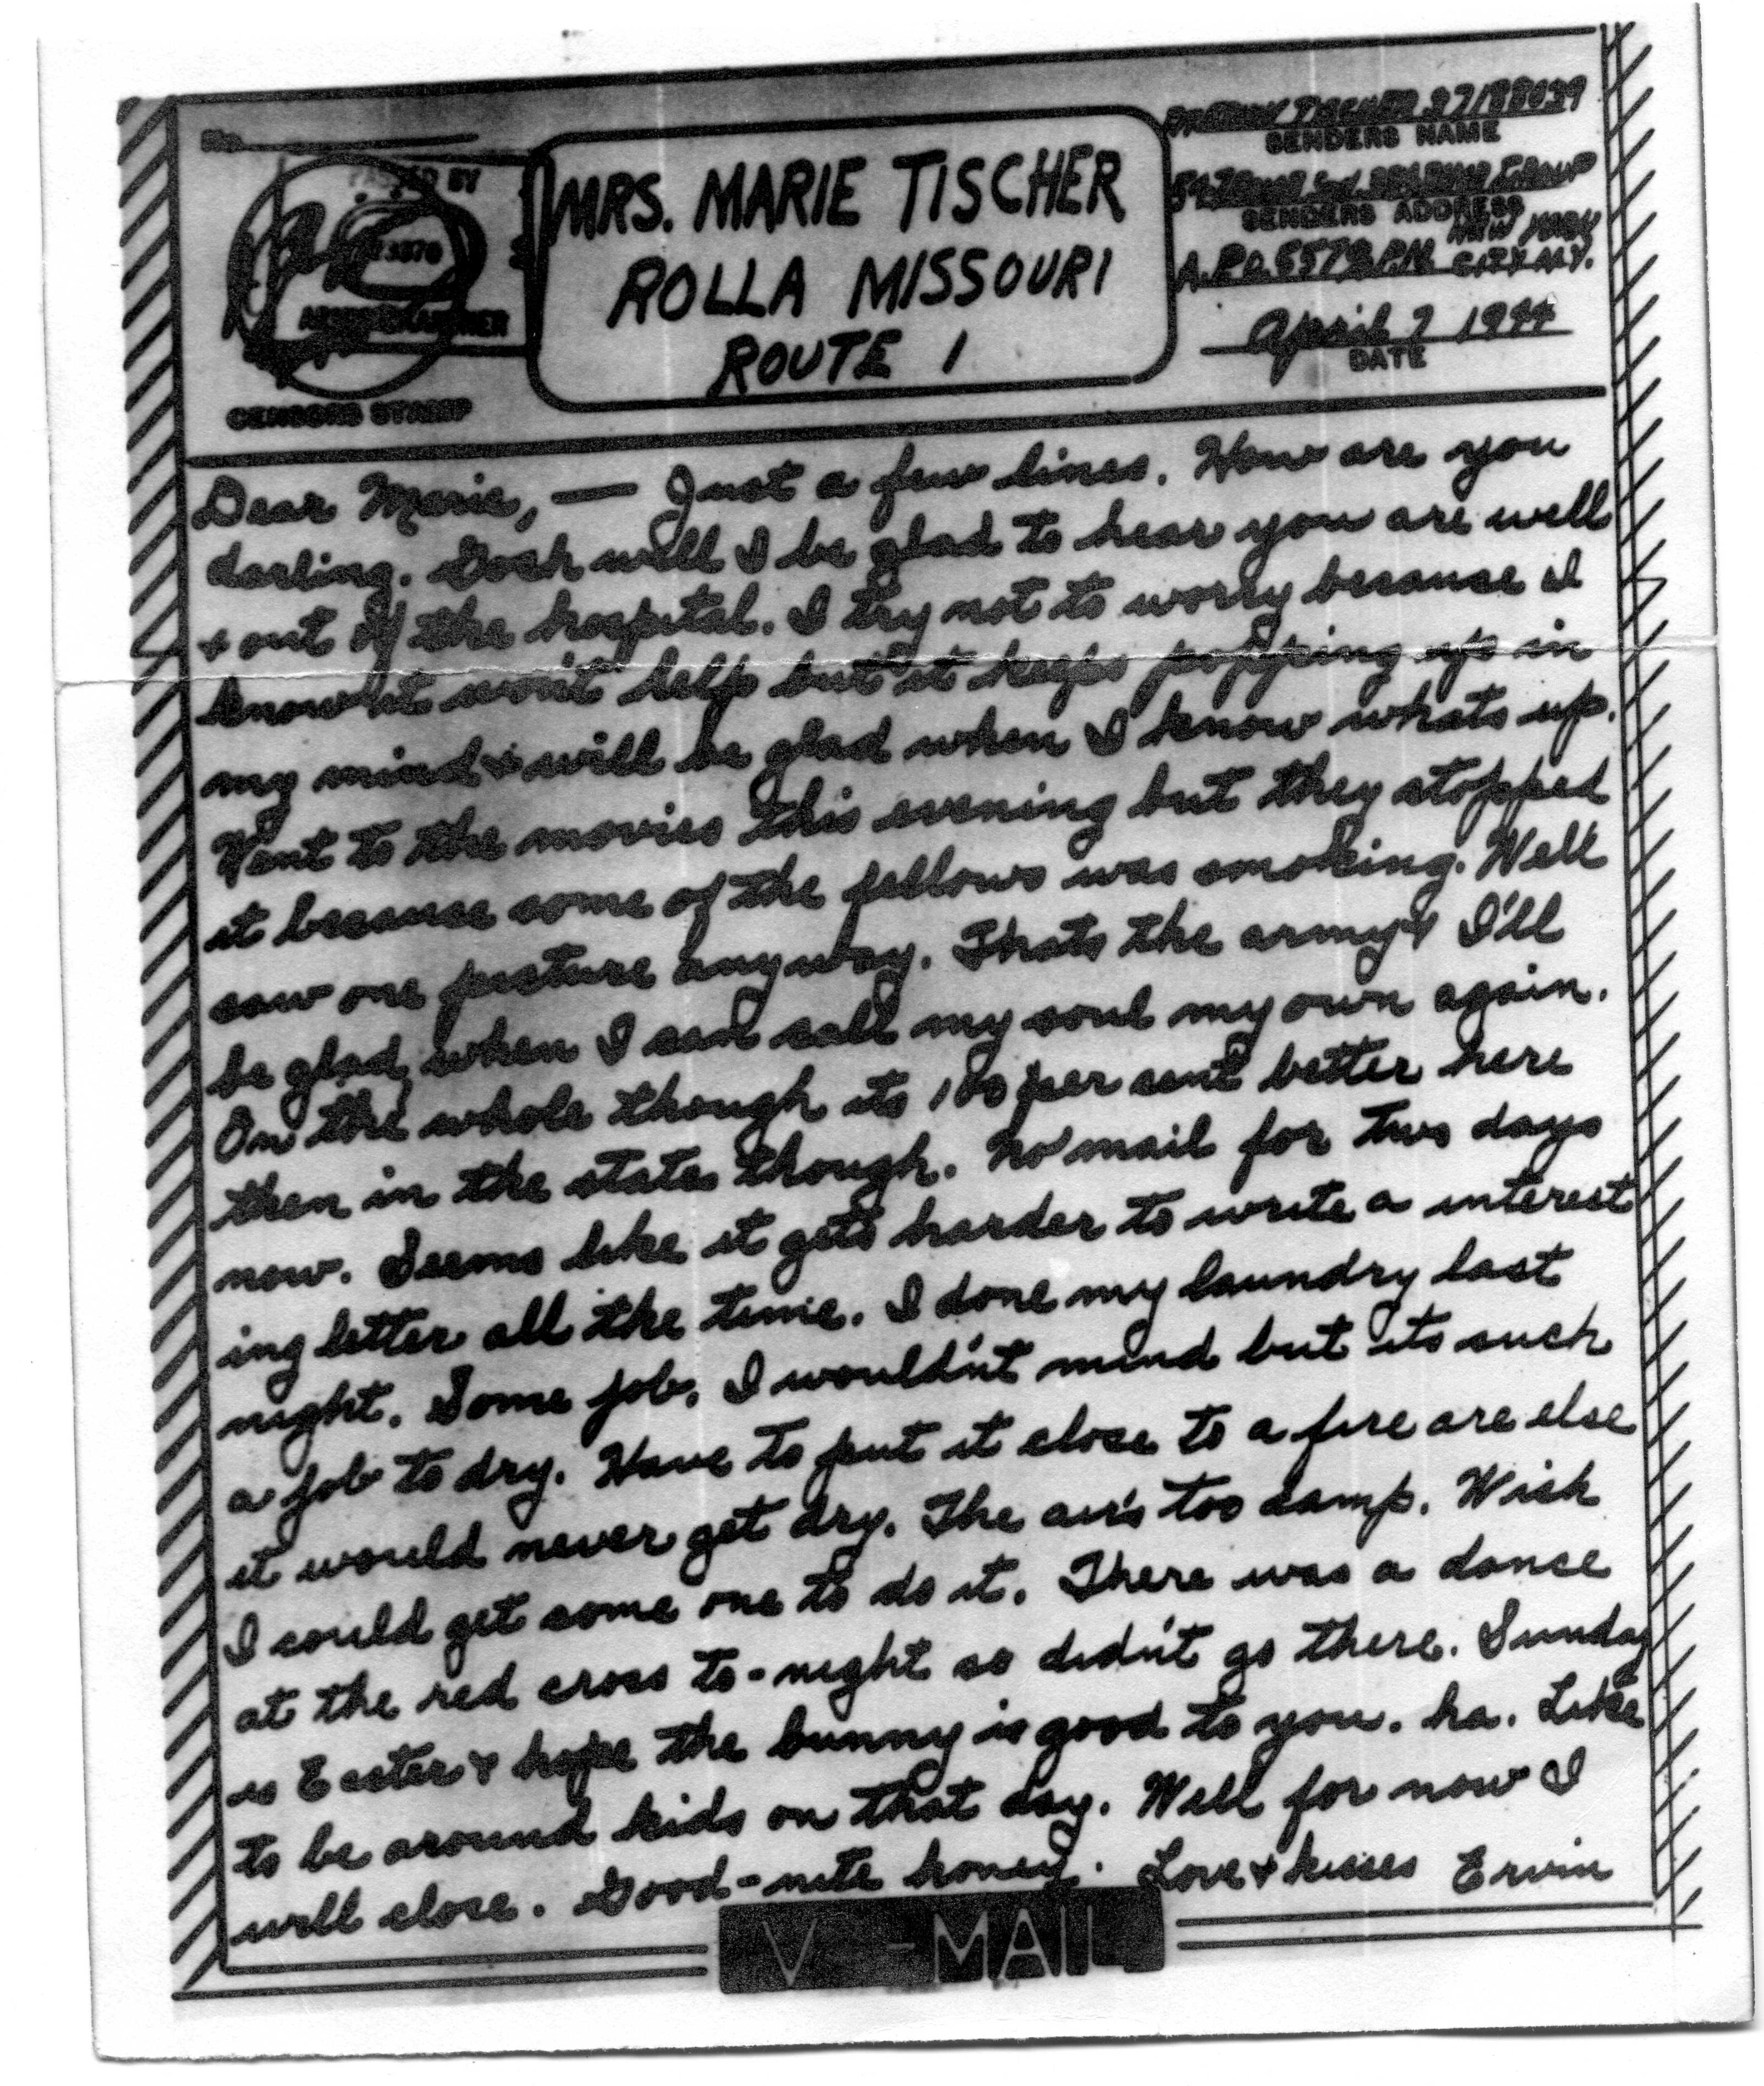 PASSED BY
ARMY EXAMINER
CENSORS STAMP
MRS. MARIE TISCHER
ROLLA MISSOURI
ROUTE 1
TISCHER 37188039
SENDERS NAME
GROUP
SENDERS ADDRESS
A.P.O. 5578 P.M. NEW YORK CITY N.Y.
April 7 1944
DATE
Dear Marie, — Just a few lines. How are you
darling. Gosh will I be glad to hear you are well
& out of the hospital. I try not to worry because I
know it won't help but it keeps popping up in
my mind & will be glad when I know whats up.
Went to the movies this evening but they stopped
it because some of the fellows was smoking. Well
saw one picture anyway. Thats the army & I'll
be glad when I can call my soul my own again.
On the whole though its 100 per cent better here
then in the states though. No mail for two days
now. Seems like it gets harder to write a interest
ing letter all the time. I done my laundry last
night. Some job. I wouldn't mind but its such
a job to dry. Have to put it close to a fire are else
it would never get dry. The air's too damp. Wish
I could get some one to do it. There was a dance
at the red cross to-night so didn't go there. Sunday
is Easter & hope the bunny is good to you. ha. Like
to be around kids on that day. Well for now I
will close. Good-nite honey. Love & kisses Ervin
V-MAIL